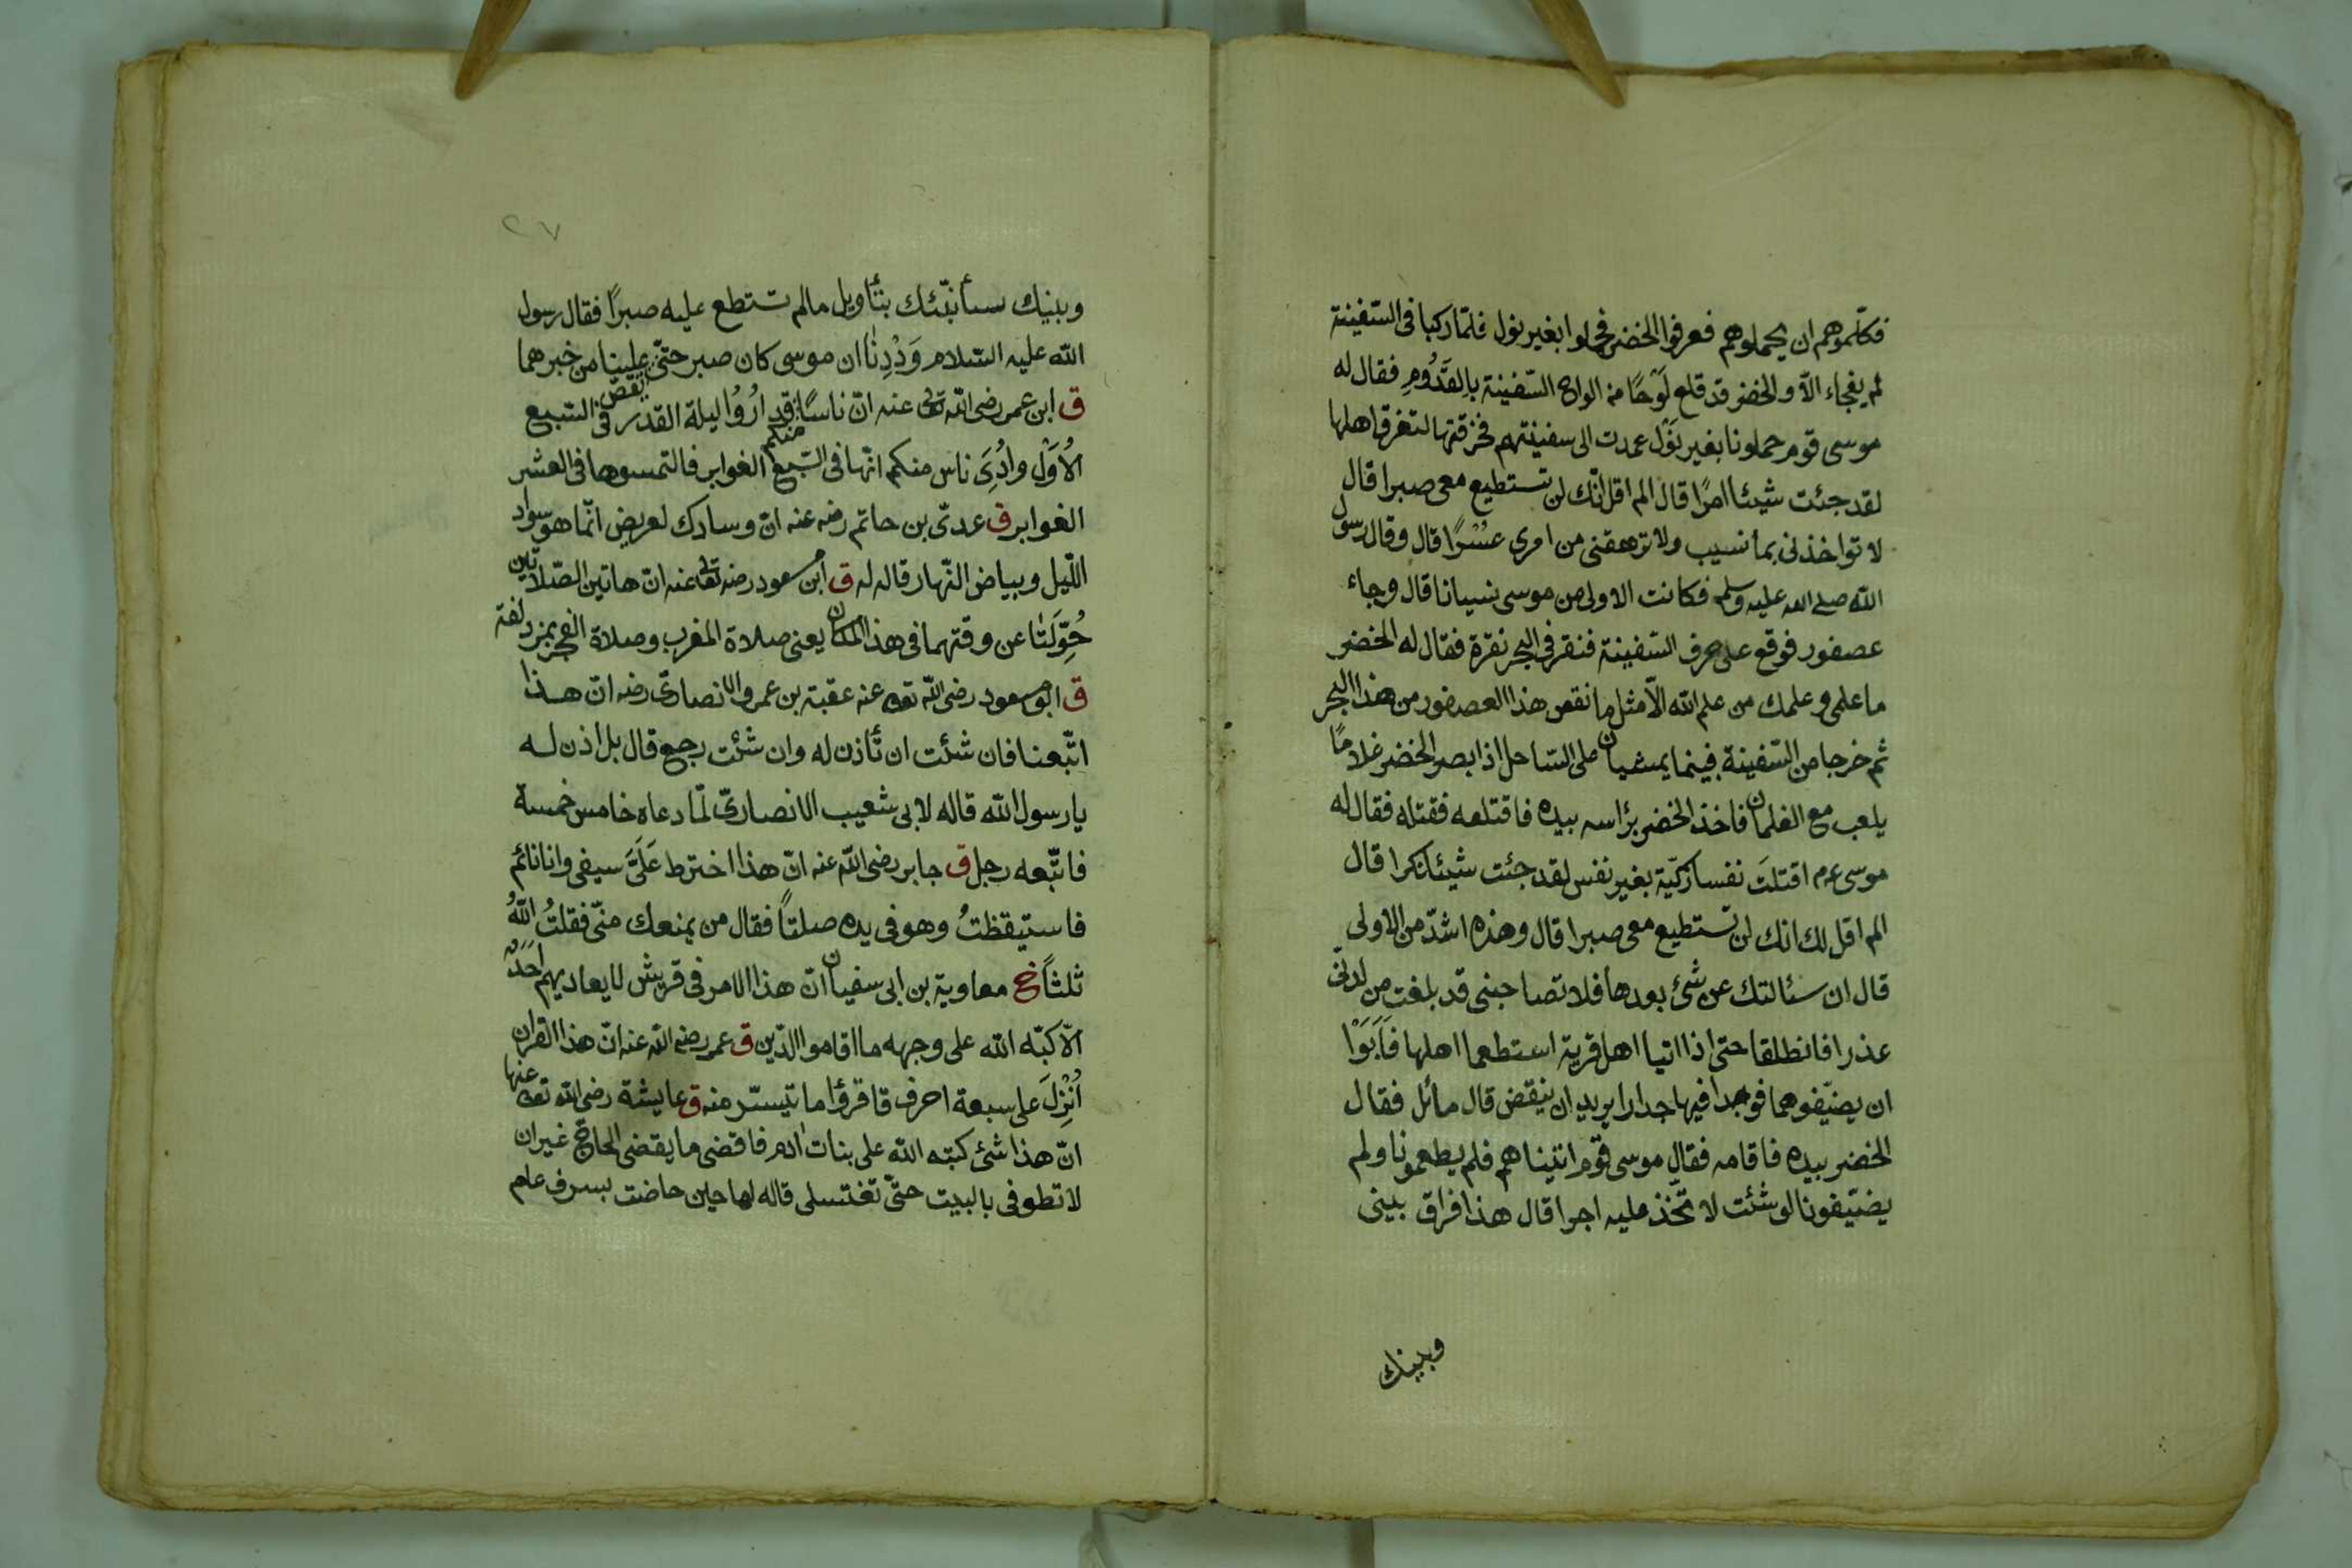 فكلّموهم ان يحملوهم فعرفوا الخضر فحملوا بغير نول فلمّا ركبا فى السّفينة
لم يفجاء الّا والخضر قد قلع لَوْحًا من الواح السّفينة بالقَدُومِ فقال له
موسى قوم حملونا بغير نَوْل عمدت الى سفينتهم فخرقتها لتغرق اهلها
لقد جئت شيئا امرًا قال الم اقل انّك لن تستطيع معى صبرا قال
لا تواخذنى بما نسيت ولا ترهقنى من امرى عسْرًا قال وقال رسول
الله صلى الله عليه وسلم فكانت الاولى من موسى نسيانا قال وجاء
عصفور فوقع على حرف السّفينة فنقر فى البحر نقرة فقال له الخضر
ما علمى وعلمك من علم الله الّا مثل ما نقص هذا العصفور من هذا البحر
ثم خرجا من السّفينة فبينما يمشيان على السّاحل اذا بصر الخضر غلامًا
يلعب مع الغلمان فاخذ الخضر برٔاسه بيده فاقتلعه فقتله فقال له
موسى عم اقتلتَ نفسا زكيّة بغير نفس لقد جئت شيئا نكرا قال
الم اقل لك انك لن تستطيع معى صبرا قال وهذه اشدّ من الاولى
قال ان سئالتك عن شئ بعدها فلا تصاحبنى قد بلغت من لدنّى
عذرا فانطلقا حتى اذا اتيا اهل قرية استطعما اهلها فَاَبَوْا
ان يضيّفوهما فوجدا فيها جدارا يريد ان ينقض قال مائل فقال
الخضر بيده فاقامه فقال موسى قوم اتيناهم فلم يطعمونا ولم
يضيّفونا لو شئت لا تّخذ عليه اجرا قال هذا فراق بينى
وبينك
٢٧
وبينك سأنبّئك بتأويل مالم تستطع عليه صبرًا فقال رسول
الله عليه السّلام وَدِدِنَا ان موسى كان صبر حتّى يقصّ علينا من خبرهما
ق ابن عمر رضى الله تعالى عنه انّ ناسًا منكم قد ارُوُا ليلة القدر فى السّبع
الْاُوَلْ وارُىَ ناس منكم انّها فى السّبع الغوابر فالتمسوها فى العشر
الغوابر ق عدىّ بن حاتم رضه عنه انّ وسادك لعريض انّما هو سواد
اللّيل وبياض النّهار قاله له ق ابن مسعود رضه تعالى عنه انّ هاتين الصّلاتين
حُوِّلَتَا عن وقتهما فى هذا المكان يعنى صلاة المغرب وصلاة الفجر بمزدلفة
ق ابو مسعود رضى الله تعالى عنه عقبة بن عمرو الانصارىّ رضه انّ هذا
اتّبعنا فان شئت ان تأذن له وان شئت رجع قال بل اذن له
يا رسول الله قاله لابى شعيب الانصارىّ لمّا دعاه خامس خمسة
فاتّبعه رجل ق جابر رضى الله عنه انّ هذا اخترط عَلَىَّ سيفى وانا نائم
فاستيقظتُ وهو فى يده صلتًا فقال من يمنعك منّى فقلتُ اللهُ
ثلثًا خ معاوية بن ابى سفيان انّ هذا الامر فى قريش لا يعاديهم احَدٌ
الّا كبّه الله على وجهه ما اقاموا الدّين ق عمر رضى الله عنه انّ هذا القران
اُنْزِلَ على سبعة احرف فاقرؤا ما تيسّر منه ق عايشة رضى الله تعالى عنها
انّ هذا شئ كتبه الله على بنات ادم فاقضى ما يقضى الحاجّ غير ان
لا تطوفى بالبيت حتّى تغتسلى قاله لها حين حاضت بسرف عام